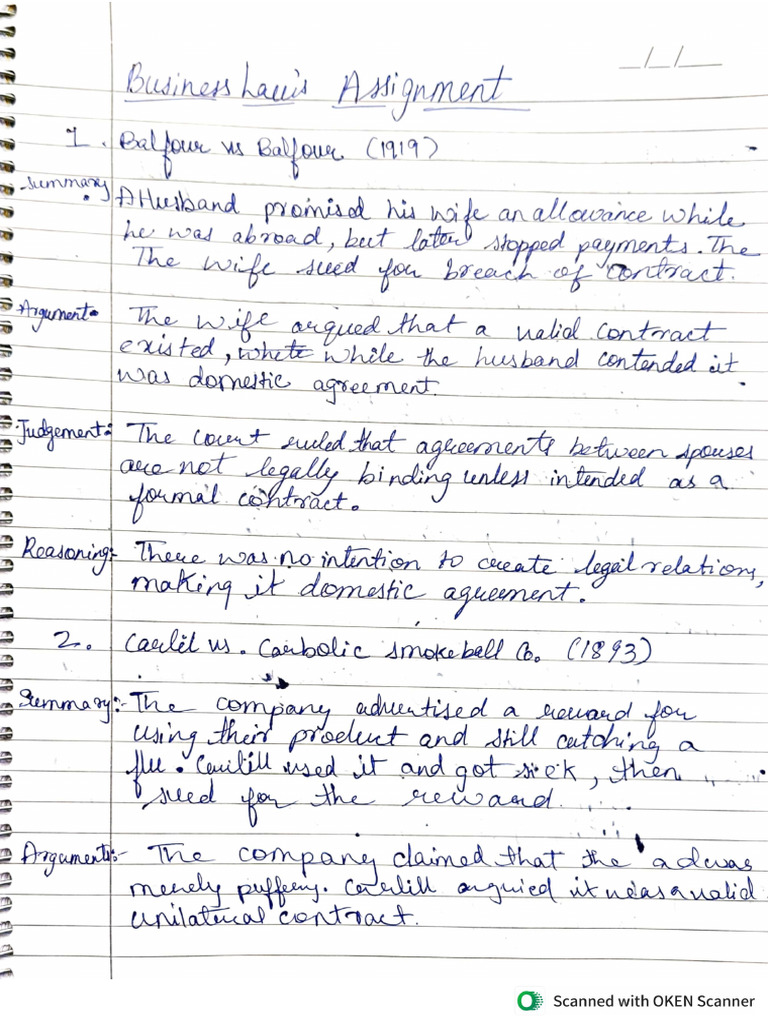 __/__/__
Business Law's Assignment
1. Balfour vs Balfour (1919)
Summary. A Husband promised his wife an allowance while
he was abroad, but later stopped payments. The
The wife sued for breach of contract.
Argument- The wife argued that a valid contract
existed, whete while the husband contended it
was domestic agreement.
Judgement:- The court ruled that agreements between spouses
are not legally binding unless intended as a
formal contract.
Reasoning:- There was no intention to create legal relations,
making it domestic agreement.
2. Carlil vs. Carbolic smokeball Co. (1893)
Summary:- The company advertised a reward for
using their product and still catching a
flu. Carlill used it and got sick, then
sued for the reward.
Arguments:- The company claimed that the ad was
merely puffery. Carlill arguied it was a valid
unilateral contract.
Scanned with OKEN Scanner